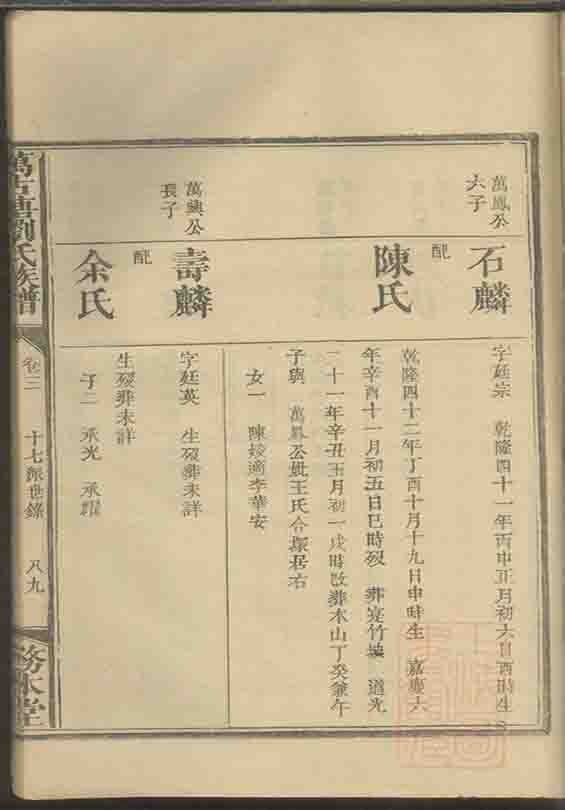 萬鳳公
六子
石麟
配
陳氏
字廷宗 乾隆四十一年丙申正月初六日酉時生
乾隆四十二年丁酉十月十九日申時生 嘉慶六
年辛酉十一月初五日巳時歿 葬寔竹塘 道光
二十一年辛丑五月初一戌時改葬木山丁癸兼午
子與 萬鳳公妣王氏合塚居右
女一 陳姣適李華安
萬興公
長子
壽麟
配
余氏
字廷英 生歿葬未詳
生歿葬未詳
子二 承光 承耀
萬古塘劉氏族譜
卷三
十七派世錄
八九
務本堂